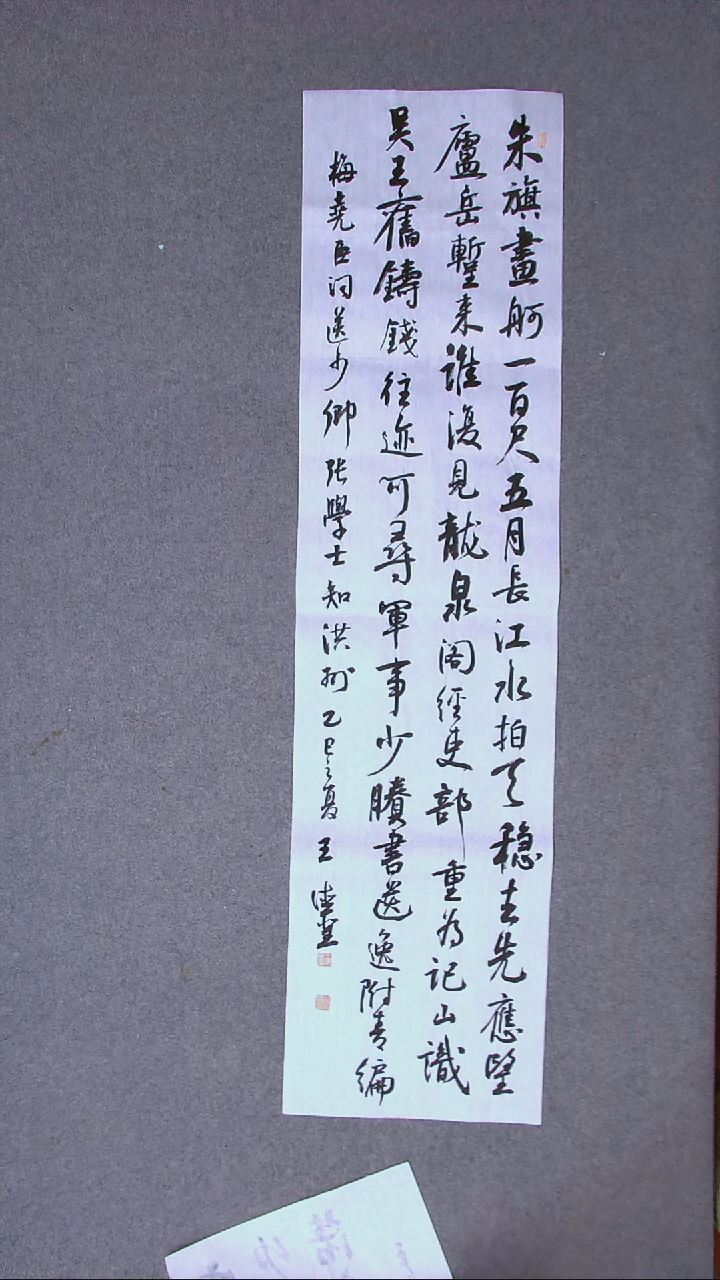 朱旗畫舸一百尺五月長江水拍天穩去先應望
廬岳暫来誰復見龍泉阁經史部重為記山識
吴王舊鑄錢往迹可尋軍事少賸書遺逸附青編
梅堯臣詞送少卿张學士知洪州乙巳之夏王